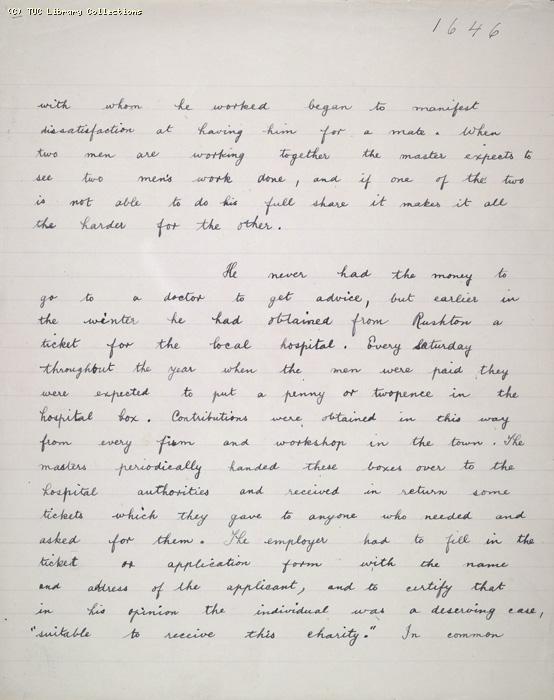 (C) TUC Library Collections
1646
with whom he worked began to manifest
dissatisfaction at having him for a mate. When
two men are working together the master expects to
see two men's work done, and if one of the two
is not able to do his full share it makes it all
the harder for the other.
He never had the money to
go to a doctor to get advice, but earlier in
the winter he had obtained from Rushton a
ticket for the local hospital. Every Saturday
throughout the year when the men were paid they
were expected to put a penny or twopence in the
hospital box. Contributions were obtained in this way
from every firm and workshop in the town. The
masters periodically handed these boxes over to the
hospital authorities and received in return some
tickets which they gave to anyone who needed and
asked for them. The employer had to fill in the
ticket or application form with the name
and address of the applicant, and to certify that
in his opinion the individual was a deserving case,
"suitable to receive this charity." In common